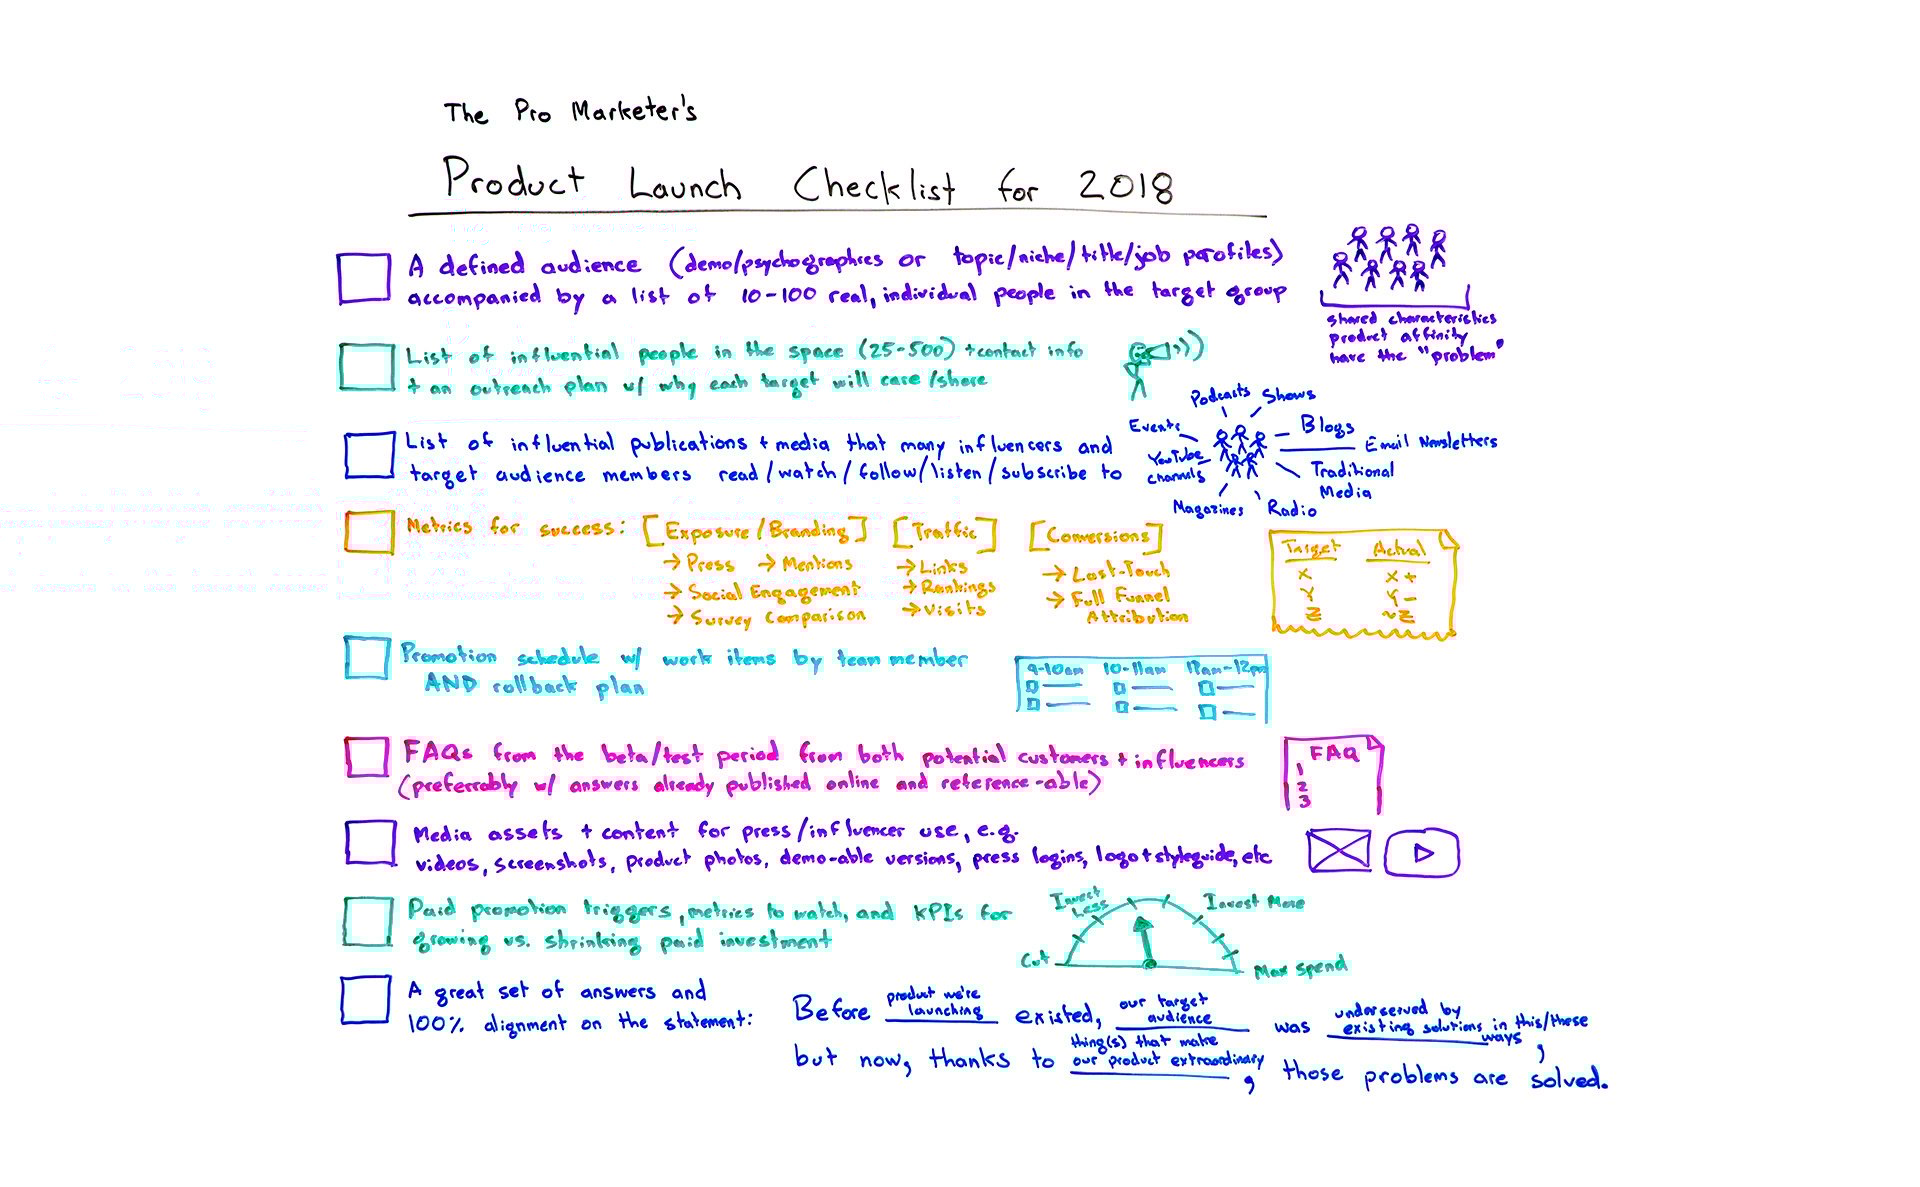 The Pro Marketer's
Product Launch Checklist for 2018
A defined audience (demo/psychographics or topic/niche/title/job profiles)
accompanied by a list of 10-100 real, individual people in the target group
shared characteristics
product affinity
have the "problem"
List of influential people in the space (25-500) + contact info
+ an outreach plan w/ why each target will care/share
List of influential publications + media that many influencers and
target audience members read/watch/follow/listen/subscribe to
Podcasts
Shows
Events
Blogs
Email Newsletters
YouTube
channels
Traditional
Media
Magazines
Radio
Metrics for success: [Exposure/Branding] [Traffic] [Conversions]
→ Press → Mentions
→ Social Engagement
→ Survey Comparison
→ Links
→ Rankings
→ Visits
→ Last-Touch
→ Full Funnel
Attribution
Target Actual
X X+
Y Y-
Z ~Z
Promotion schedule w/ work items by team member
AND rollback plan
9-10am 10-11am 11am-12pm
FAQs from the beta/test period from both potential customers + influencers
(preferrably w/ answers already published online and reference-able)
FAQ
1
2
3
Media assets + content for press/influencer use, e.g.
videos, screenshots, product photos, demo-able versions, press logins, logo + styleguide, etc
Paid promotion triggers, metrics to watch, and KPIs for
growing vs. shrinking paid investment
Invest
Less
Invest More
Cut
Max Spend
A great set of answers and
100% alignment on the statement:
Before product we're launching existed, our target audience was underserved by existing solutions in this/these ways,
but now, thanks to thing(s) that make our product extraordinary, those problems are solved.